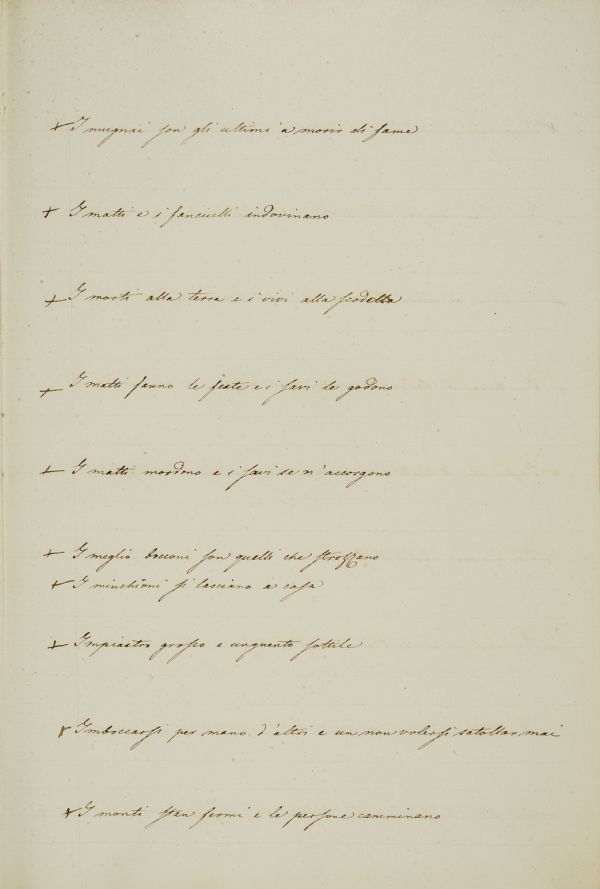 + I mugnai son gli ultimi a morir di fame
+ I matti e i fanciulli indovinano
+ I morti alla terra e i vivi alla scodella
+ I matti fanno le feste e i savi le godono
+ I matti mordono e i savi se n'accorgono
+ I meglio bocconi son quelli che strozzano
+ I minchioni si lasciano a casa
+ Impiastro grosso e unguento sottile
+ Imboccarsi per mano d'altri e un non volersi satollar mai
+ I monti stan fermi e le persone camminano